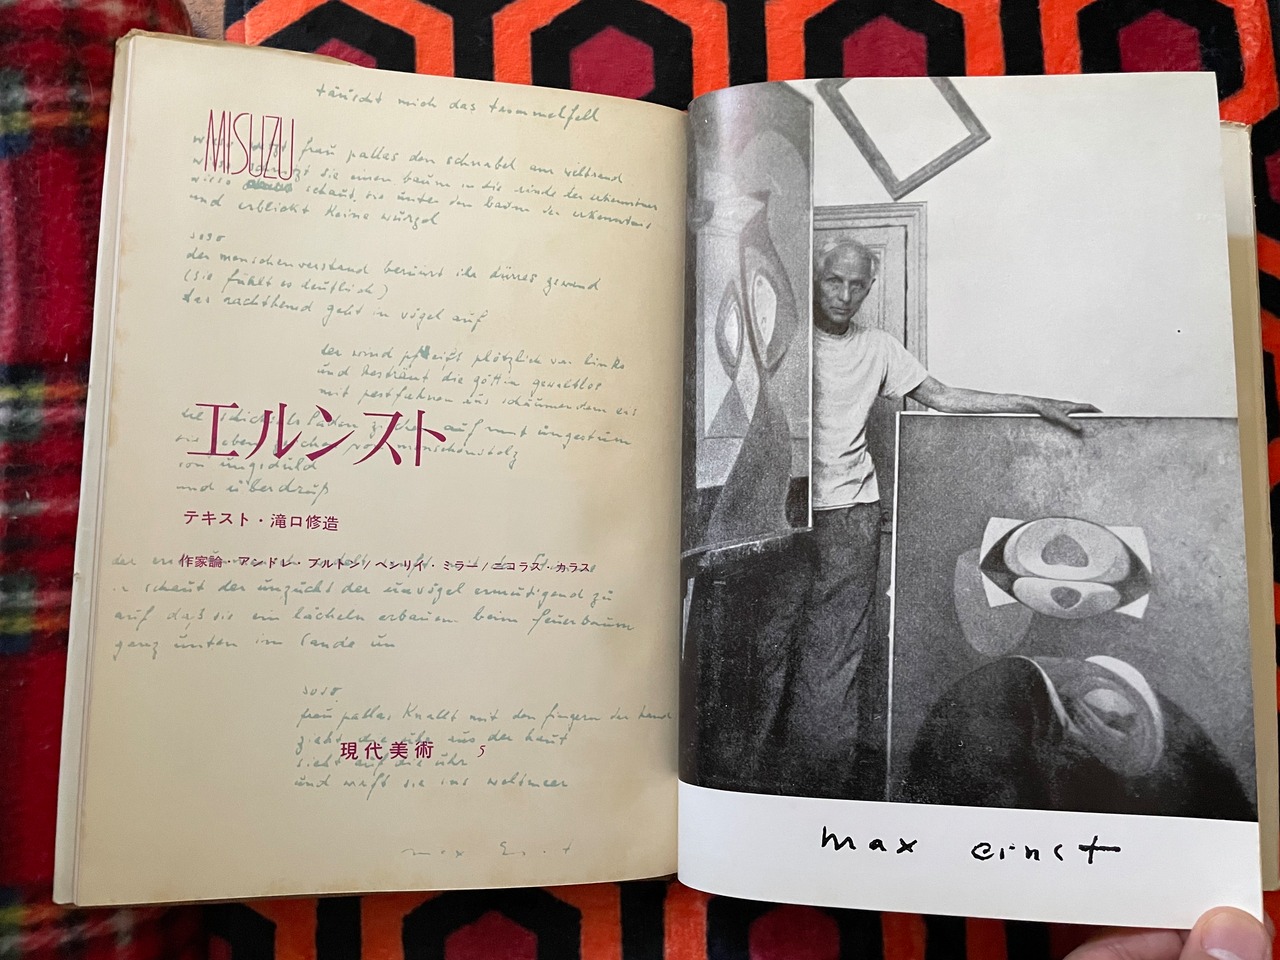 täuscht mich das trommelfell
MISUZU
frau pallas den schnabel am
sie einen baum in die rinde der erkenntnis
wieso schaut sie unter den baum der erkenntnis
und erblickt keine würzel
soso
der menschenverstand berührt ihr dürres gewand
(sie fühlt es deutlich)
das nachthemd geht in vögel auf
der wind pfeift plötzlich von links
und besträut die göttin gewaltlos
mit postfahnen aus schäumendem eis
エルンスト
auf mit ungestüm
von ungeduld
und überdruß
テキスト・滝口修造
作家論・アンドレ・ブルトン/ヘンリイ・ミラー/ニコラス・カラス
schaut der unzucht der ürvögel ermutigend zu
auf daß sie ein lächeln erbauen beim feuerbaum
ganz unten im lande un
soso
frau pallas knallt mit den fingern der hand
zieht die uhr aus der haut
現代美術 5
sieht auf die uhr
und wirft sie ins weltmeer
max Ernst
max ernst